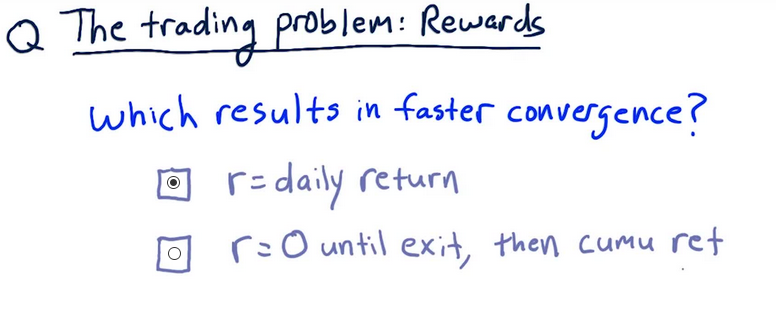 Q The trading problem: Rewards
Which results in faster convergence?
r= daily return
r=0 until exit, then cumu ret